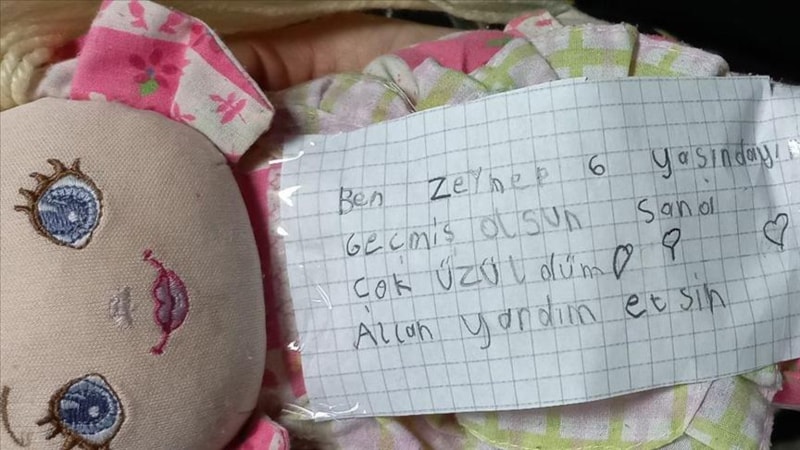 Ben Zeynep 6 yaşındayı
Geçmiş olsun sana
Çok üzüldüm
Allah yardım etsin